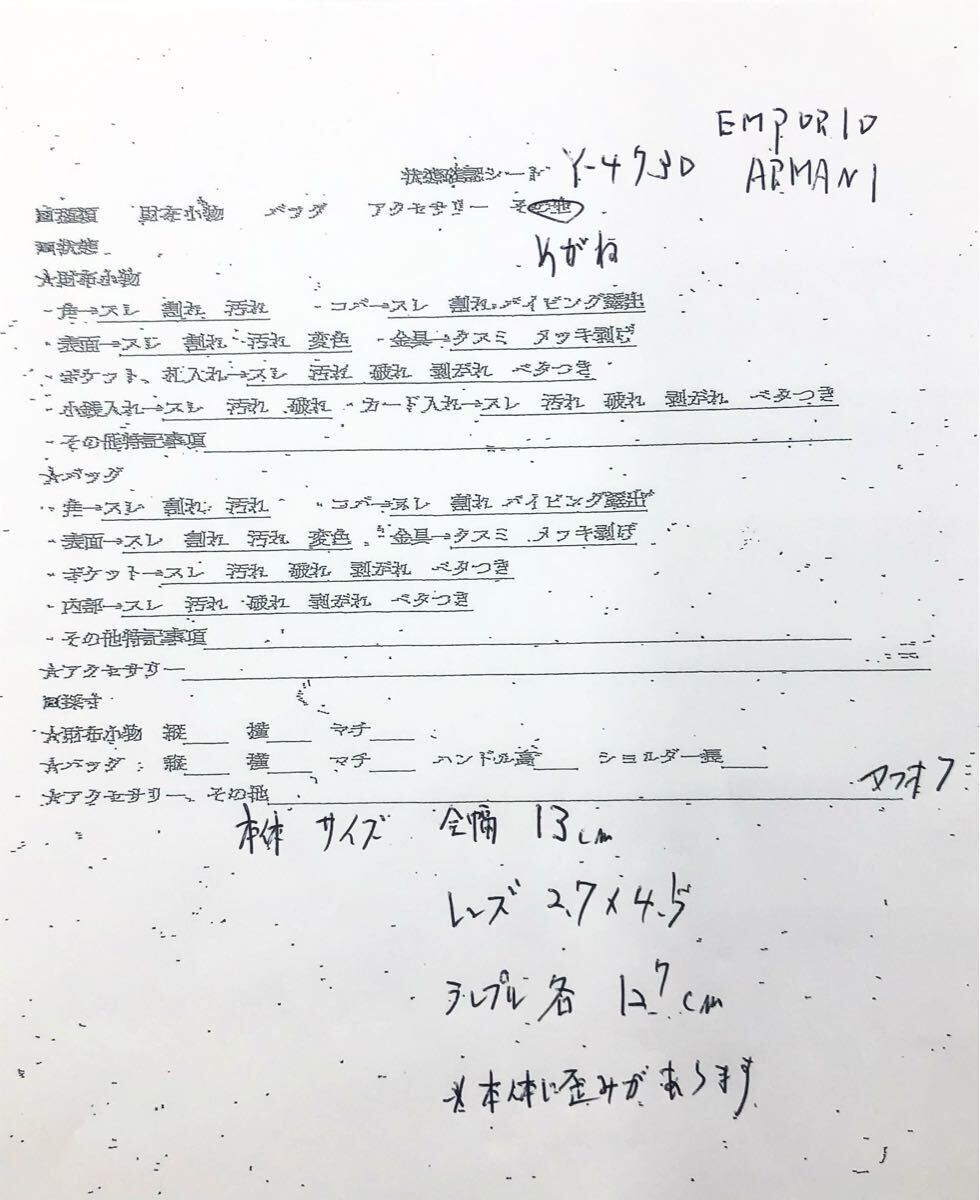 EMPORIO
ARMANI
状態確認シート Y-4730
■種類 財布小物 バッグ アクセサリー その他
めがね
■状態
★財布小物
・角→スレ 割れ 汚れ ・コバ→スレ 割れ パイピング露出
・表面→スレ 割れ 汚れ 変色 ・金具→クスミ メッキ剥げ
・ポケット、札入れ→スレ 汚れ 破れ 剥がれ ベタつき
・小銭入れ→スレ 汚れ 破れ ・カード入れ→スレ 汚れ 破れ 剥がれ ベタつき
・その他特記事項
★バッグ
・角→スレ 割れ 汚れ ・コバ→スレ 割れ パイピング露出
・表面→スレ 割れ 汚れ 変色 ・金具→クスミ メッキ剥げ
・ポケット→スレ 汚れ 破れ 剥がれ ベタつき
・内部→スレ 汚れ 破れ 剥がれ ベタつき
・その他特記事項
★アクセサリー
■採寸
★財布小物 縦 横 マチ
★バッグ:縦 横 マチ ハンドル高 ショルダー長
★アクセサリー、その他
本体 サイズ 全幅 13cm
レンズ 2.7×4.5
テンプル 各 12.7cm
※本体に歪みがあります